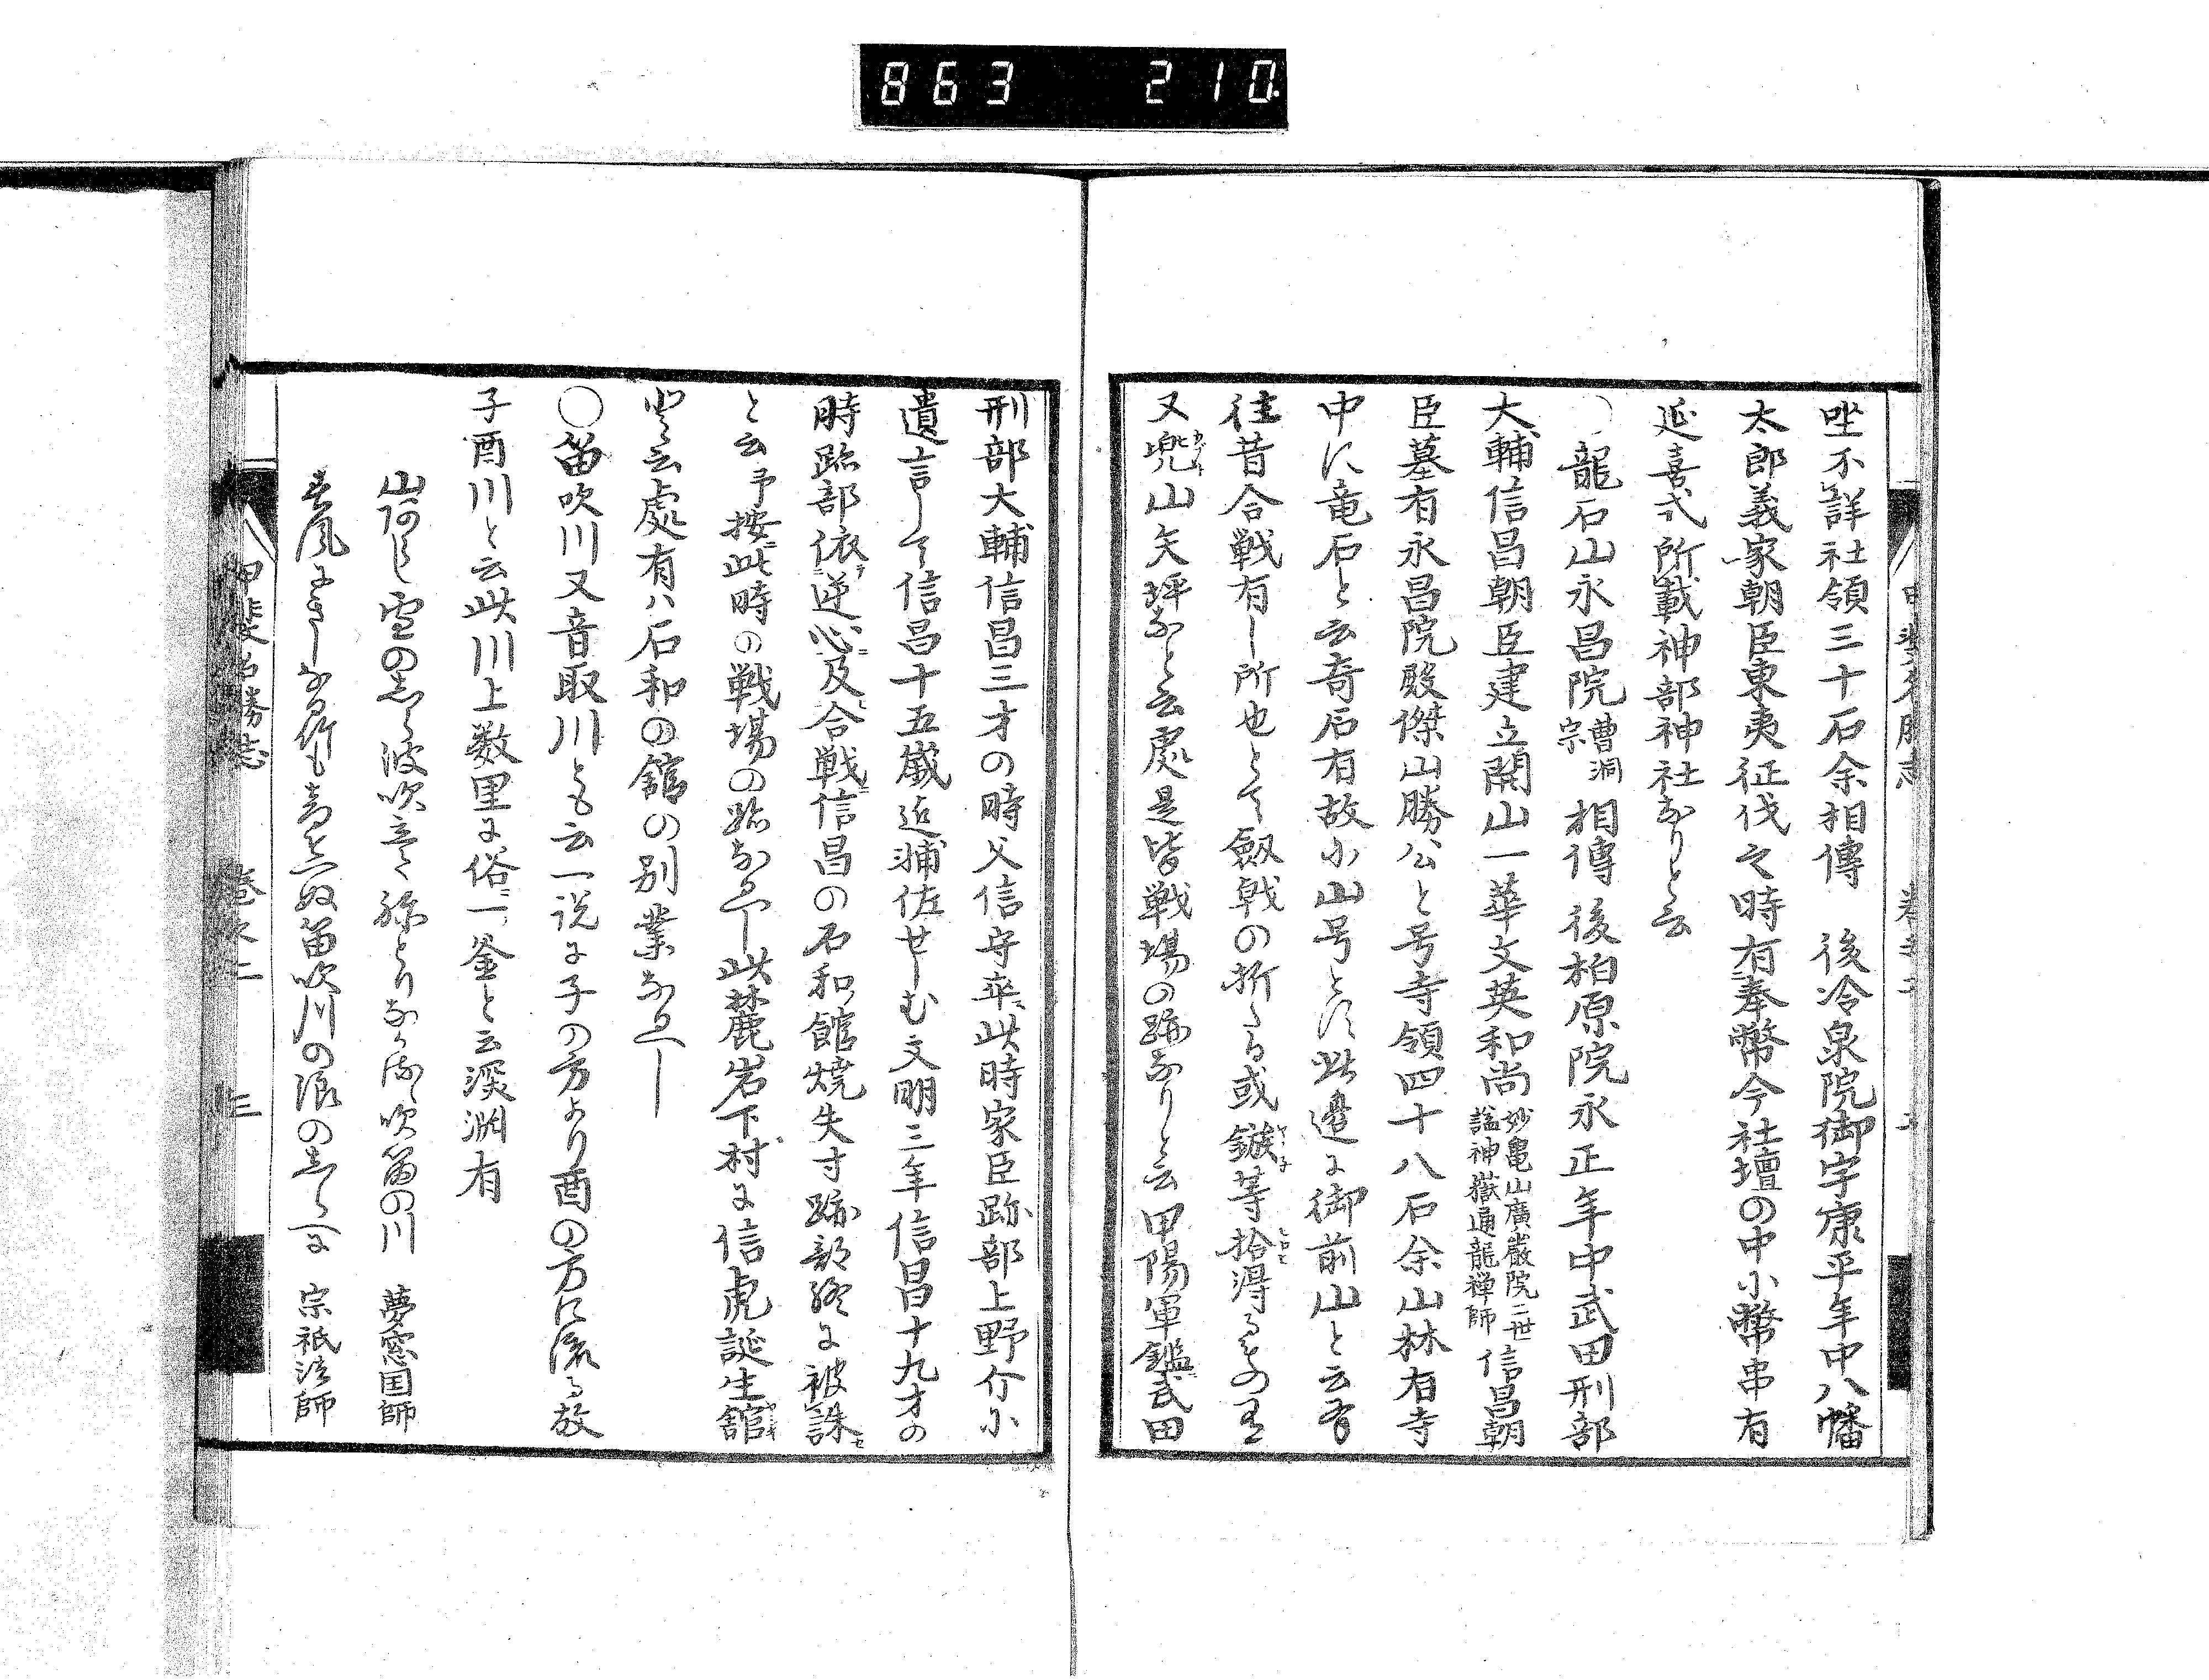 863 210
坐不詳社領三十石余相傳　後冷泉院御宇康平年中八幡
太郎義家朝臣東夷征伐之時有奉幣今社壇の中小幣串有
延喜式所載神部神社なりと云
○龍石山永昌院曹洞宗相傳後柏原院永正年中武田刑部
大輔信昌朝臣建立開山一華文英和尚妙亀山廣嚴院二世謚神嶽通龍禅師信昌朝
臣墓有永昌院殿傑山勝公と号寺領四十八石余山林有寺
中に竜石と云奇石有故小山号とす此邊に御前山と云有
往昔合戦有し所也とて劔戟の折たる或鏃等拾得るもの有
又兜山矢坪なと云處是皆戦場の跡なりと云甲陽軍鑑武田
刑部大輔信昌三才の時父信守卒此時家臣跡部上野介小
遺言して信昌十五歳迄補佐せしむ文明三年信昌十九才の
時跡部依逆心及合戦信昌の石和館焼失す跡部終に被誅
と云予按此時の戦場の跡なるへし此麓岩下村に信虎誕生舘
と云處有ハ石和の舘の別業なるへし
○笛吹川又音取川とも云一説に子の方より酉の方に流る故
子酉川と云此川上数里に俗一釜と云深淵有
雪のしら波吹立て ねとりなかるゝ吹笛の川　夢窓国師
春風に 笛吹川の浪のしらへに　宗祇法師
甲斐名勝志　巻之二　三